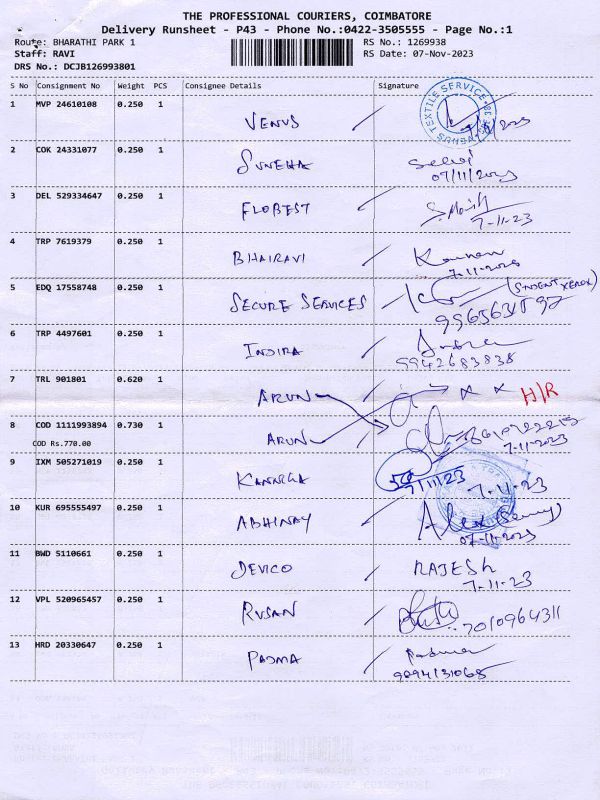 THE PROFESSIONAL COURIERS, COIMBATORE
Delivery Runsheet - P43 - Phone No.:0422-3505555 - Page No.:1
Route: BHARATHI PARK 1 RS No.: 1269938
Staff: RAVI RS Date: 07-Nov-2023
DRS No.: DCJB126993801
S No Consignment No Weight PCS Consignee Details Signature
1 MVP 24610108 0.250 1 VENUS
VENUS TEXTILE SERVICE
2 COK 24331077 0.250 1 SUNEHA Selvi
07/11/2023
3 DEL 529334647 0.250 1 FLOBEST
7-11-23
4 TRP 7619379 0.250 1 BHAIRAVI
7-11-2023
5 EDQ 17558748 0.250 1 SECURE SERVICES (STUDENT XEROX)
6 TRP 4497601 0.250 1 INDIRA
9942683838
7 TRL 901801 0.620 1 ARUN x x H/R
8 COD 1111993894 0.730 1 ARUN
COD Rs.770.00 7-11-2023
9 IXM 505271019 0.250 1
7/11/23 7-11-23
10 KUR 695555497 0.250 1 ABHINAY Alex
07-11-2023
11 BWD 5110661 0.250 1 DEVICO RAJESH
7-11-23
12 VPL 520965457 0.250 1 RUSAN
7010964311
13 HRD 20330647 0.250 1 PADMA Padma
9894131068